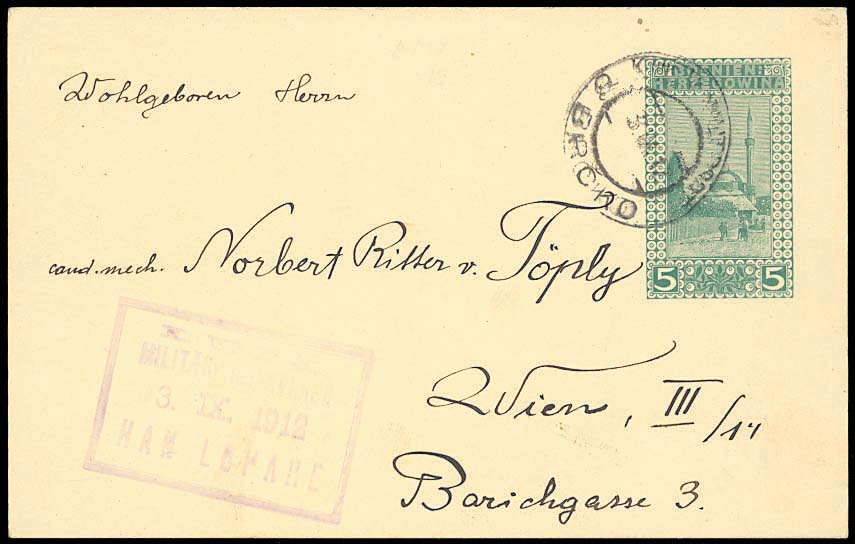 Wohlgeboren Herrn
BOSNIEN-
HERCEGOWINA
BRČKO
cand. mech. Norbert Ritter v. Töply
5 5
3. IX. 1912
HAN LOPARE
Wien, III/
Barichgasse 3.